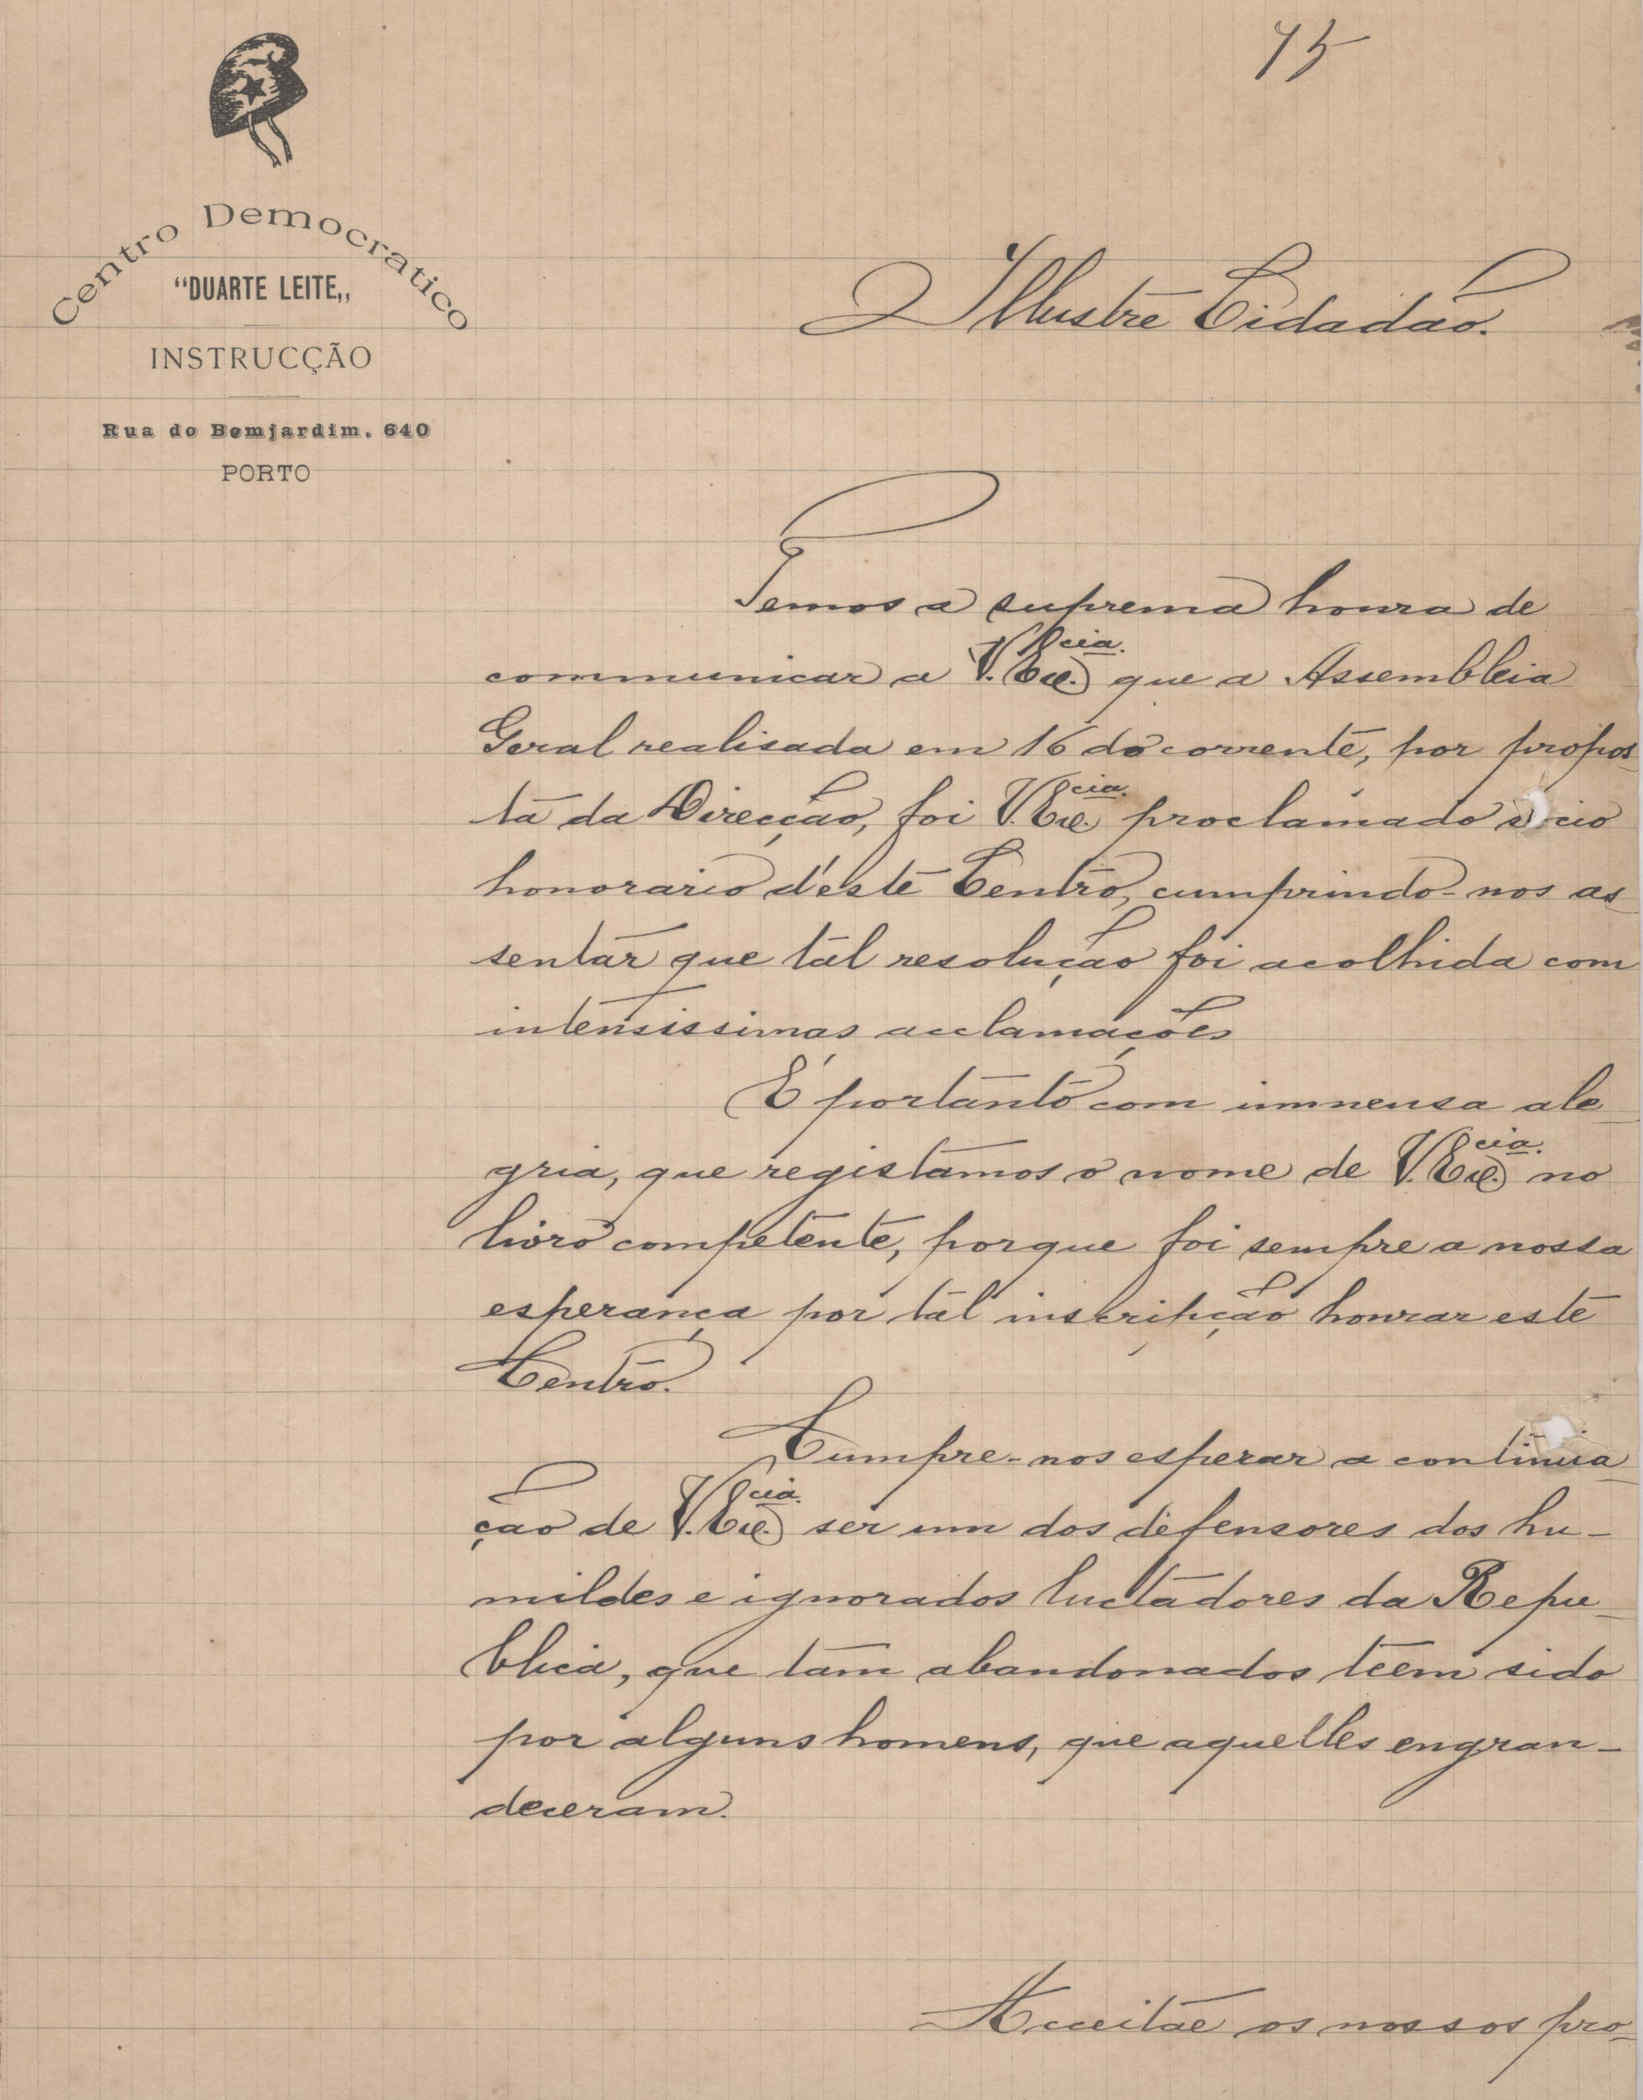 75
Centro Democratico
"DUARTE LEITE,,
INSTRUCÇÃO
Rua do Bomjardim. 640
PORTO
Illustre Cidadão.
Temos a suprema honra de
communicar a V. Excia. que a Assembleia
Geral realisada em 16 do corrente, por propos-
ta da Direcção, foi V. Excia. proclamado socio
honorario d'este Centro, cumprindo-nos as-
sentar que tal resolução foi acolhida com
intensissimas acclamações
É portanto com immensa ale-
gria, que registamos o nome de V. Excia. no
livro competente, porque foi sempre a nossa
esperança por tal inscripção honrar este
Centro.
Cumpre-nos esperar a continua-
ção de V. Excia. ser um dos defensores dos hu-
mildes e ignorados luctadores da Repu-
blica, que tam abandonados teem sido
por alguns homens, que aquelles engran-
deceram.
Acceitae os nossos pro-